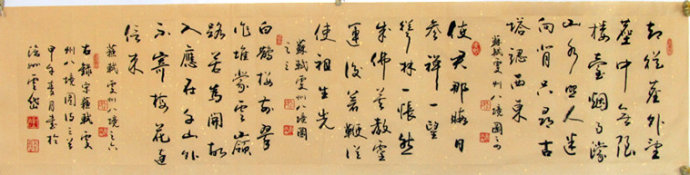 却從塵外望
塵中無限
樓臺煙雨濛
山水照人迷
向背只尋孤
塔認西東
蘇軾虔州八境圖之
使君那暇日
參禪一望
叢林一悵然
成佛莫教靈
運後著鞭從
使祖生先
蘇軾虔州八境圖
之三
白鵲樓前翠
作堆縈雲嶺
路若為開故
人應在千山外
不寄梅花遠
信來
蘇軾虔州八境之六
右錄宋蘇軾虔
州八境圖詩三首
甲午春月書於